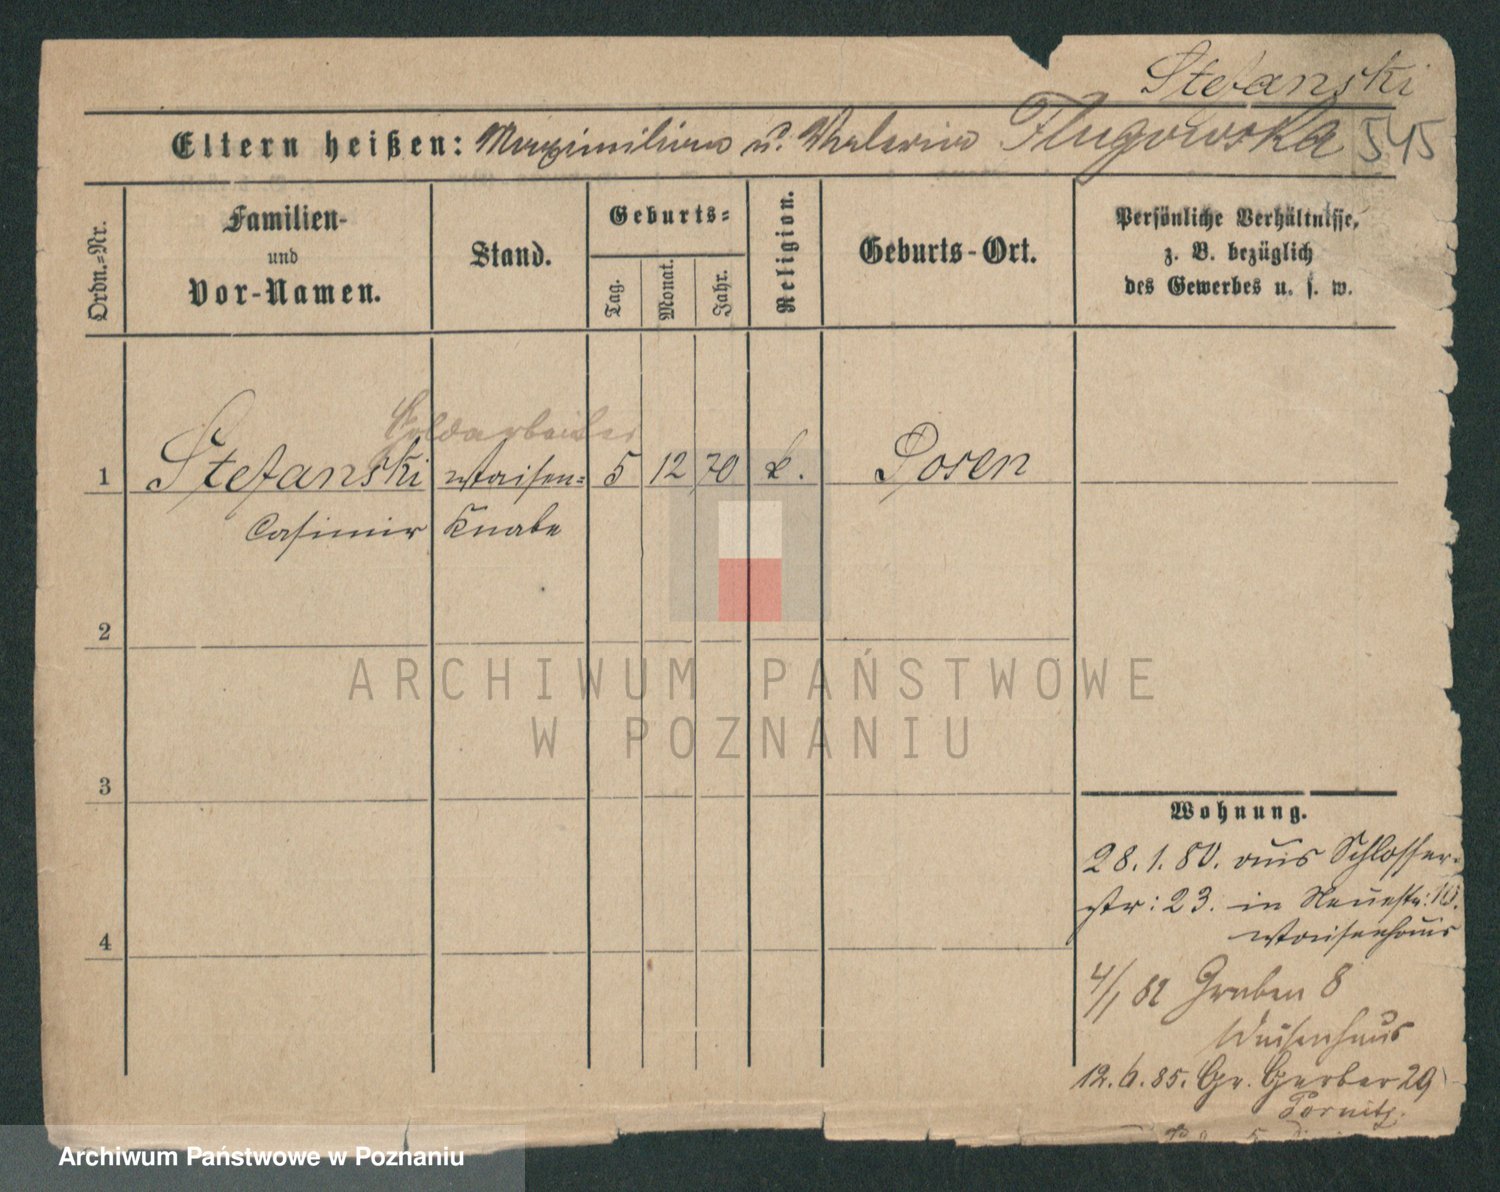 Stefanski
Eltern heißen: Maximilian u. Valeria Flugowska 545
Ordn.-Nr.
Familien-
und
Vor-Namen.
Stand.
Geburts-
Tag.
Monat.
Jahr.
Religion.
Geburts-Ort.
Persönliche Verhältnisse,
z. B. bezüglich
des Gewerbes u. s. w.
Goldarbeiter
1 Stefanski Waisen- 5 12 70 k. Posen
Casimir Knabe
2
3
4
ARCHIWUM PAŃSTWOWE
W POZNANIU
Wohnung.
28.1.80. aus Schlosser-
str: 23. in Neuestr: 10.
Waisenhaus
4/1 82 Graben 8
Waisenhaus
12.6.85. Gr. Gerber 29
Archiwum Państwowe w Poznaniu